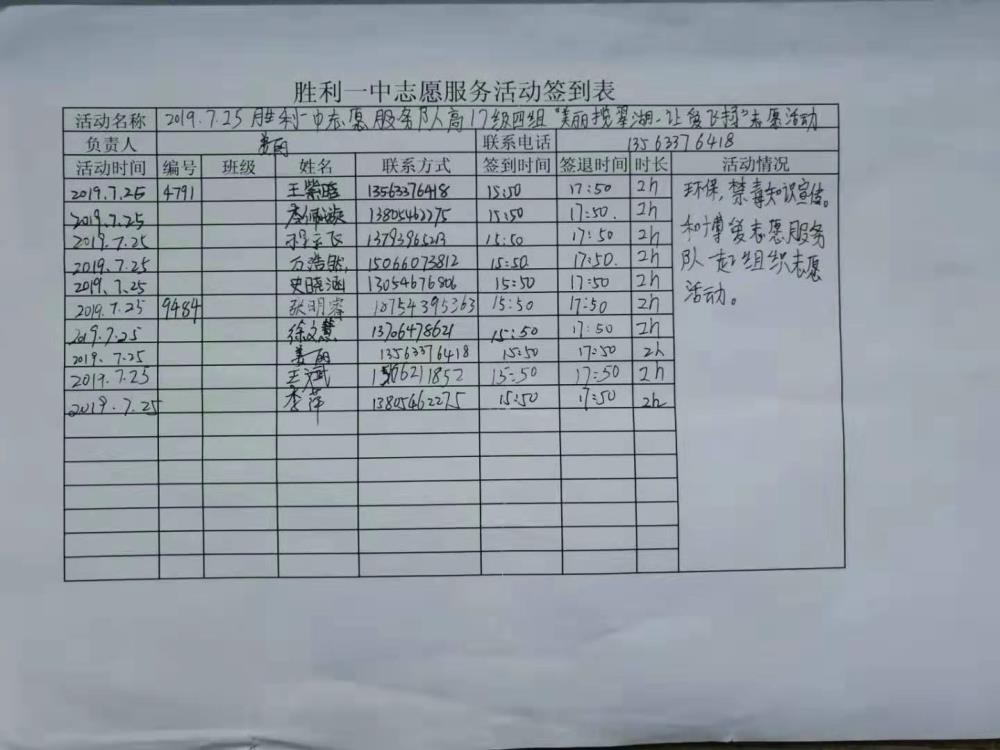 胜利一中志愿服务活动签到表
活动名称 2019.7.25 胜利一中志愿服务队高17级四组"美丽揽翠湖-让爱飞扬"志愿活动
负责人 姜丽 联系电话 13563376418
活动时间 编号 班级 姓名 联系方式 签到时间 签退时间 时长 活动情况
2019.7.25 4791 王紫晗 13563376418 15:50 17:50 2h 环保,禁毒知识宣传。
2019.7.25 李佩璇 13805462275 15:50 17:50. 2h
2019.7.25 程云飞 15:50 17:50 2h 和博爱志愿服务
2019.7.25 万浩然 15066073812 15:50. 17:50. 2h 队一起组织志愿
2019.7.25 史晓涵 13054676806 15:50 17:50 2h 活动。
2019.7.25 9484 张明睿 18754395363 15:50 17:50 2h
2019.7.25 徐文慧 13706478621 15:50 17:50 2h
2019.7.25 姜丽 13563376418 15:50 17:50 2h
2019.7.25 王斌 15:50 17:50 2h
2019.7.25 李萍 13805462275 15:50 17:50 2h